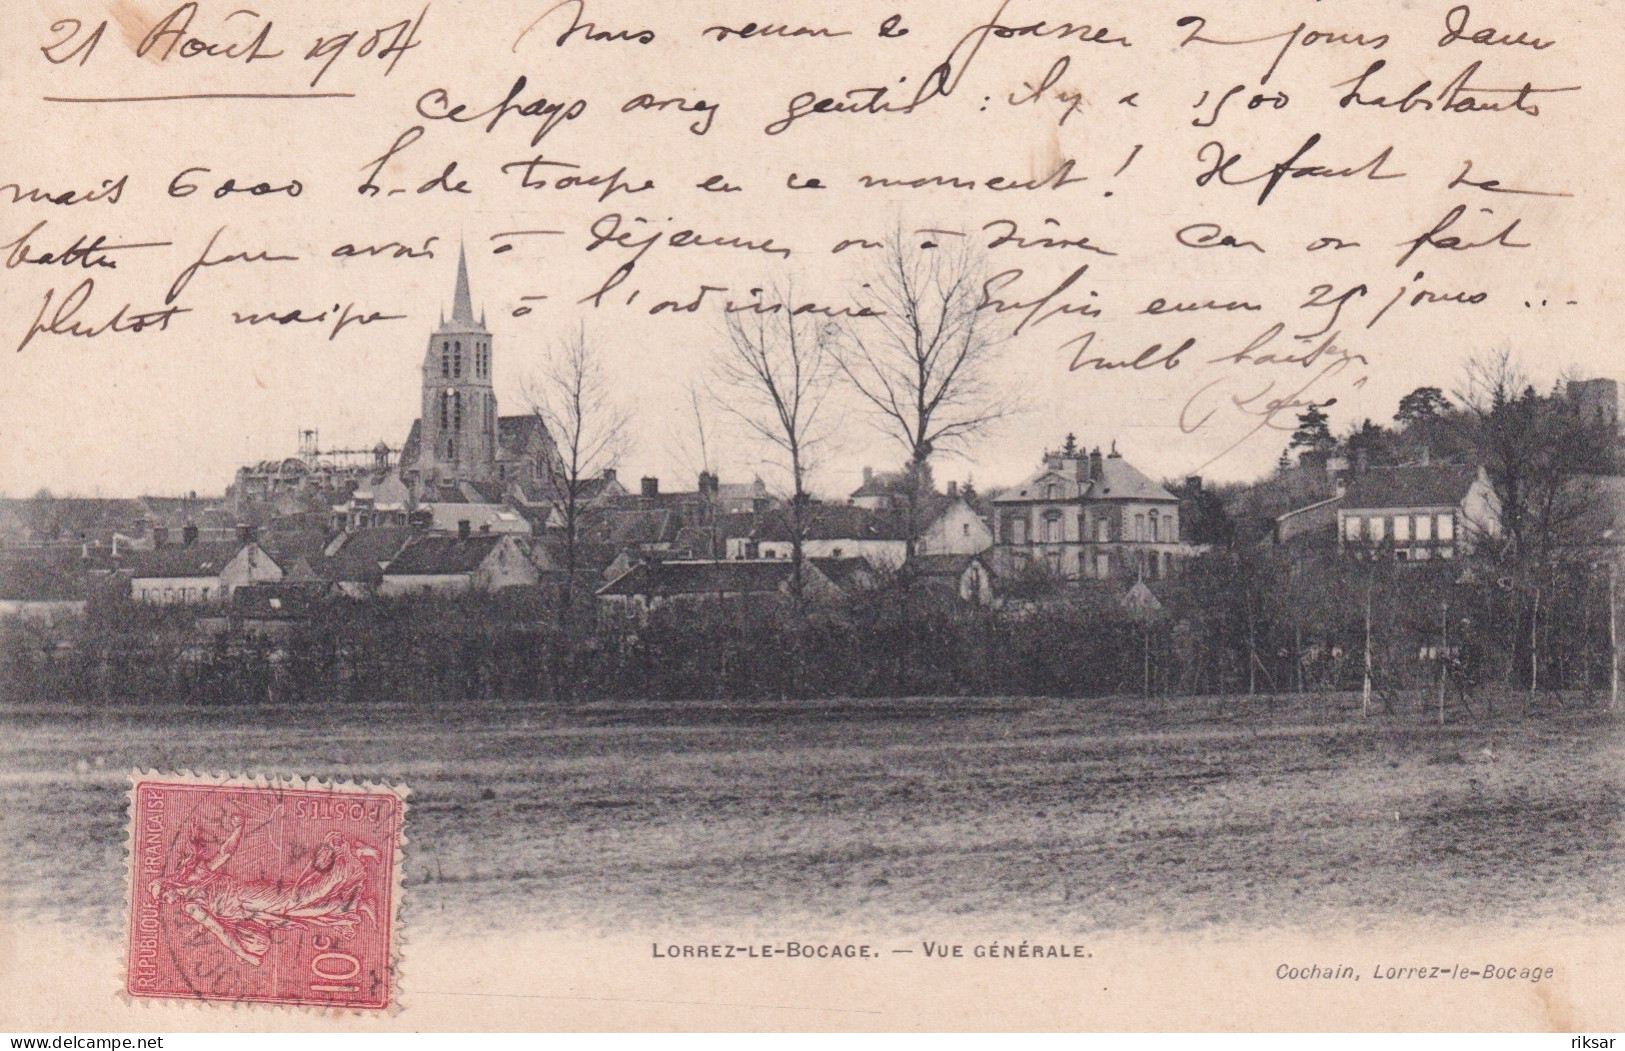 21 Août 1904 Nous venons de passer 2 jours dans
ce pays assez gentil : il y a 1500 habitants
mais 6000 h. de troupe en ce moment ! Il faut se
battre pour avoir à déjeuner ou à dîner car on fait
plutot maigre à l'ordinaire. Enfin encore 25 jours ...
Mille baisers
LORREZ-LE-BOCAGE. — VUE GÉNÉRALE.
Cochain, Lorrez-le-Bocage
REPUBLIQUE FRANÇAISE
POSTES
10c
04
riksar